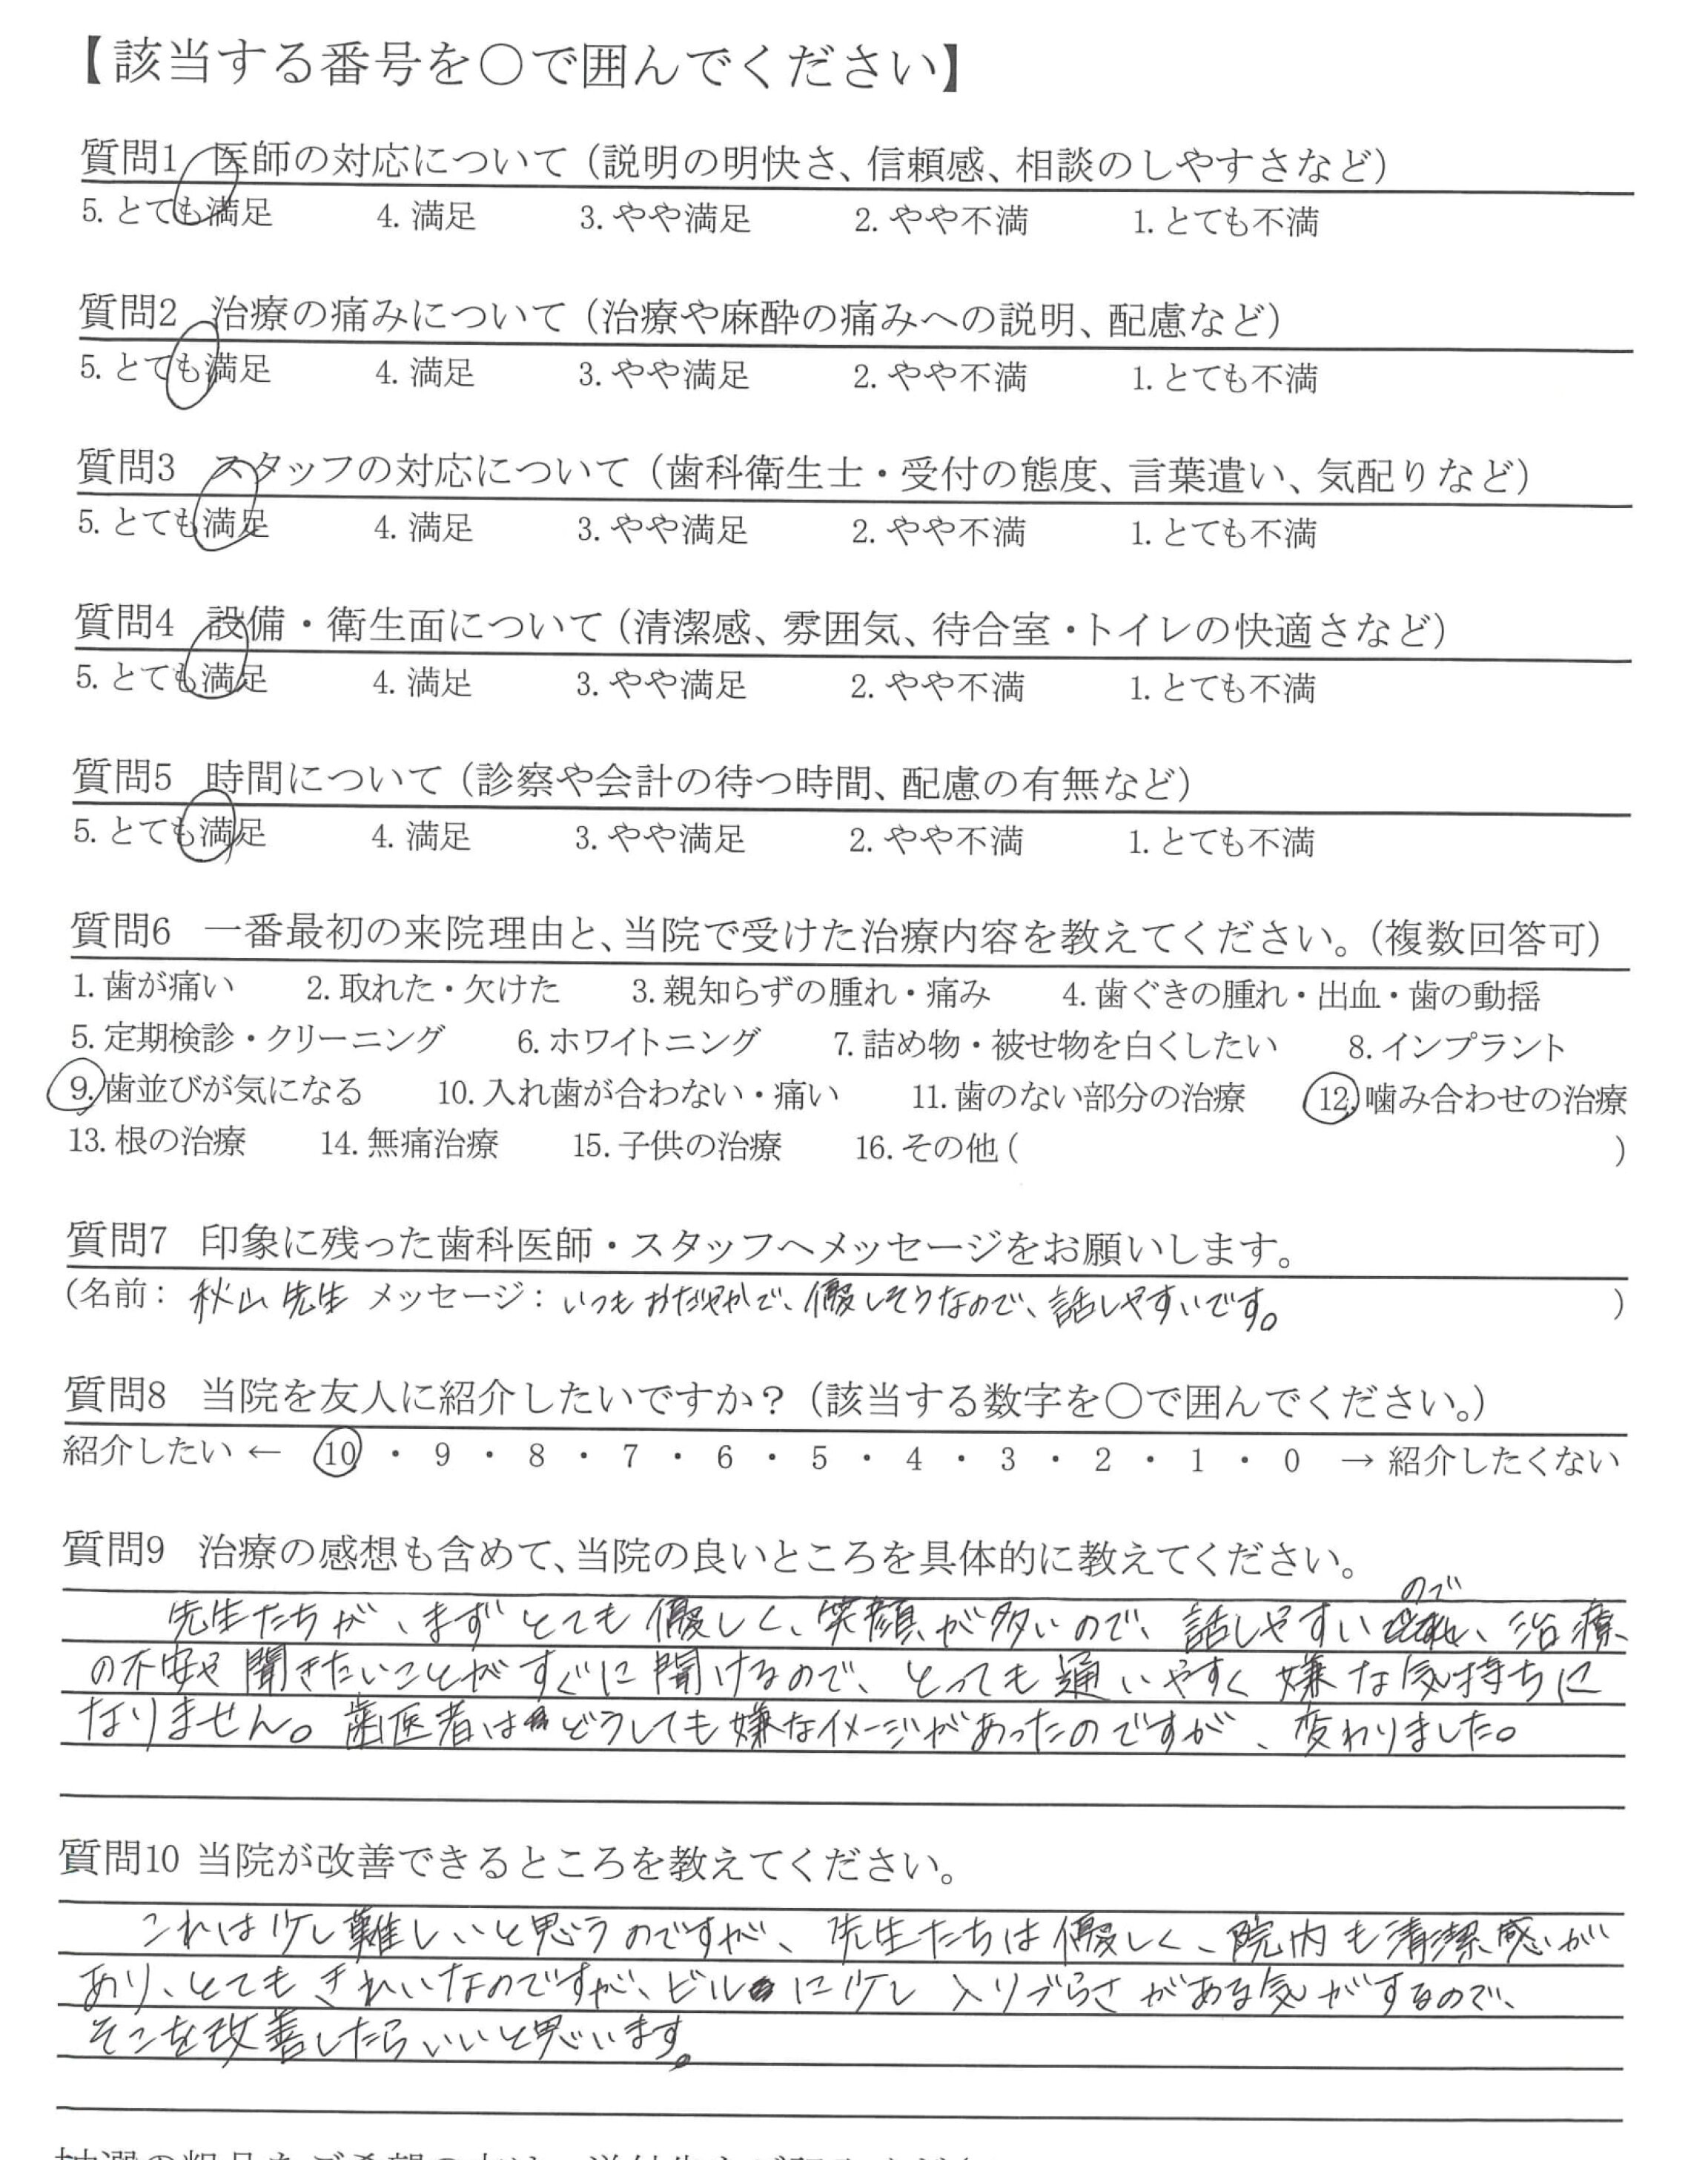 【該当する番号を○で囲んでください】
質問1 医師の対応について（説明の明快さ、信頼感、相談のしやすさなど）
5. とても満足 4. 満足 3. やや満足 2. やや不満 1. とても不満
質問2 治療の痛みについて（治療や麻酔の痛みへの説明、配慮など）
5. とても満足 4. 満足 3. やや満足 2. やや不満 1. とても不満
質問3 スタッフの対応について（歯科衛生士・受付の態度、言葉遣い、気配りなど）
5. とても満足 4. 満足 3. やや満足 2. やや不満 1. とても不満
質問4 設備・衛生面について（清潔感、雰囲気、待合室・トイレの快適さなど）
5. とても満足 4. 満足 3. やや満足 2. やや不満 1. とても不満
質問5 時間について（診察や会計の待つ時間、配慮の有無など）
5. とても満足 4. 満足 3. やや満足 2. やや不満 1. とても不満
質問6 一番最初の来院理由と、当院で受けた治療内容を教えてください。（複数回答可）
1. 歯が痛い 2. 取れた・欠けた 3. 親知らずの腫れ・痛み 4. 歯ぐきの腫れ・出血・歯の動揺
5. 定期検診・クリーニング 6. ホワイトニング 7. 詰め物・被せ物を白くしたい 8. インプラント
9. 歯並びが気になる 10. 入れ歯が合わない・痛い 11. 歯のない部分の治療 12. 噛み合わせの治療
13. 根の治療 14. 無痛治療 15. 子供の治療 16. その他（ ）
質問7 印象に残った歯科医師・スタッフへメッセージをお願いします。
（名前： 秋山先生 メッセージ： いつもおだやかで、優しそうなので、話しやすいです。 ）
質問8 当院を友人に紹介したいですか？（該当する数字を○で囲んでください。）
紹介したい ← 10 ・ 9 ・ 8 ・ 7 ・ 6 ・ 5 ・ 4 ・ 3 ・ 2 ・ 1 ・ 0 → 紹介したくない
質問9 治療の感想も含めて、当院の良いところを具体的に教えてください。
先生たちが、まずとても優しく、笑顔が多いので、話しやすいので、治療
の不安や聞きたいことがすぐに聞けるので、とっても通いやすく嫌な気持ちに
なりません。歯医者はどうしても嫌なイメージがあったのですが、変わりました。
質問10 当院が改善できるところを教えてください。
これは少し難しいと思うのですが、先生たちは優しく、院内も清潔感が
あり、とてもきれいなのですが、ビルに少し入りづらさがある気がするので、
そこを改善したらいいと思います。